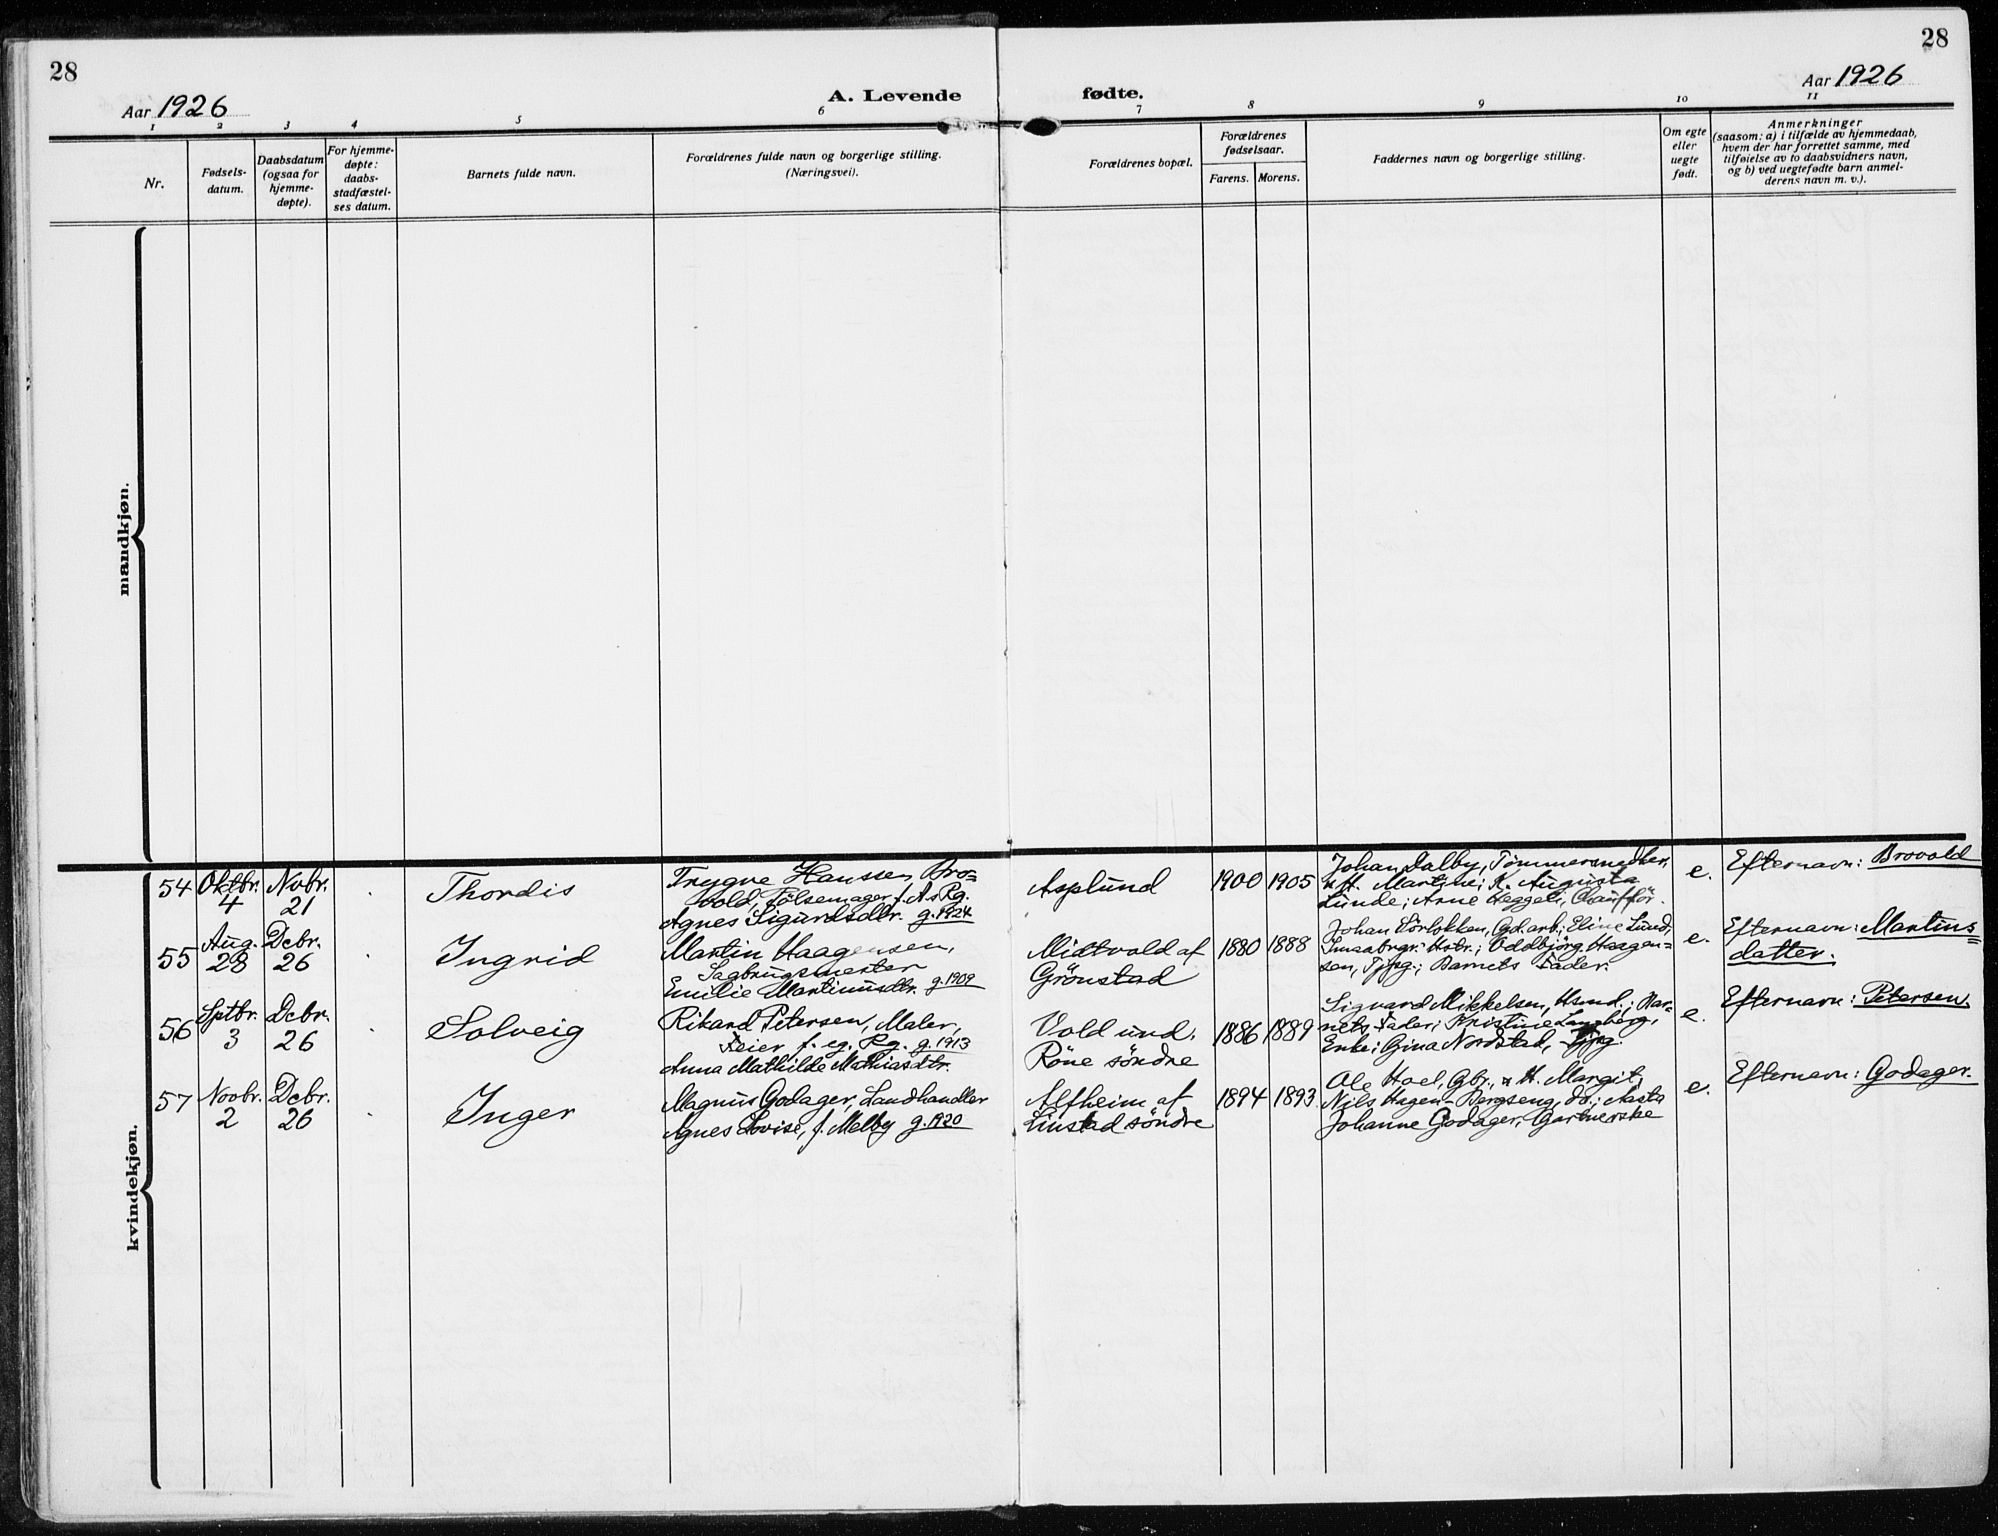 28
28
Aar 1926
A. Levende fødte.
Aar 1926
1 2 3 4 5 6 7 8 9 10 11
Nr.
Fødsels-
datum.
Daabsdatum
(ogsaa for
hjemme-
døpte).
For hjemme-
døpte:
daabs-
stadfæstel-
ses datum.
Barnets fulde navn.
Forældrenes fulde navn og borgerlige stilling.
(Næringsvei).
Forældrenes bopæl.
Forældrenes
fødselsaar.
Farens. Morens.
Faddernes navn og borgerlige stilling.
Om egte
eller
uegte
født.
Anmerkninger
(saasom: a) i tilfælde av hjemmedaab,
hvem der har forrettet samme, med
tilføielse av to daabsvidners navn,
og b) ved uegtefødte barn anmel-
derens navn m. v.).
mandkjøn.
kvindekjøn.
54
Oktbr.
4
Novbr.
21
Thordis
Trygve Hanssen Bro=
vold, Pölsemager f. A s Pg.
Agnes Sigurdsdtr. g. 1924
Asplund
1900 1905
Johan Dalby, Tömmersnedker,
Martine; K. Augusta
Lunde; Arne Heggeli, Chaufför.
e.
Efternavn: Brovold
55
Aug.
28
Dcbr.
26
Ingrid
Martin Haagensen,
Sagbrugsmester
Emilie Martinusdtr. g. 1909
Midtvold af
Grönstad
1880 1888
Johan Lörlokken, Gd.arb.; Eline Lund,
Hstr.; Oddbjörg Haagen=
sen, Tjpg.; Barnets Fader.
e.
Efternavn: Martinus=
datter.
56
Sptbr.
3
Dcbr.
26
Solveig
Rikard Petersen, Maler,
Feier f. eg. Rg. g. 1913
Anna Mathilde Mathiasdtr.
Vold und.
Röne söndre
1886 1889
Sigvard Mikkelsen, Hsmd.; Bar=
nets Fader; Kristine Langberg,
Enke; Gina Nordstad, Tjpg.
e.
Efternavn: Petersen.
57
Novbr.
2
Dcbr.
26
Inger
Magnus Godager, Landhandler
Agnes Lovise, f. Melby g. 1920
Alfheim af
Linstad söndre
1894 1893
Ole Hoel, Gbr., & H. Margit;
Nils Hagen-Bergseng, do.; Aasta
Johanne Godager, Gartnerske
e.
Efternavn: Godager.